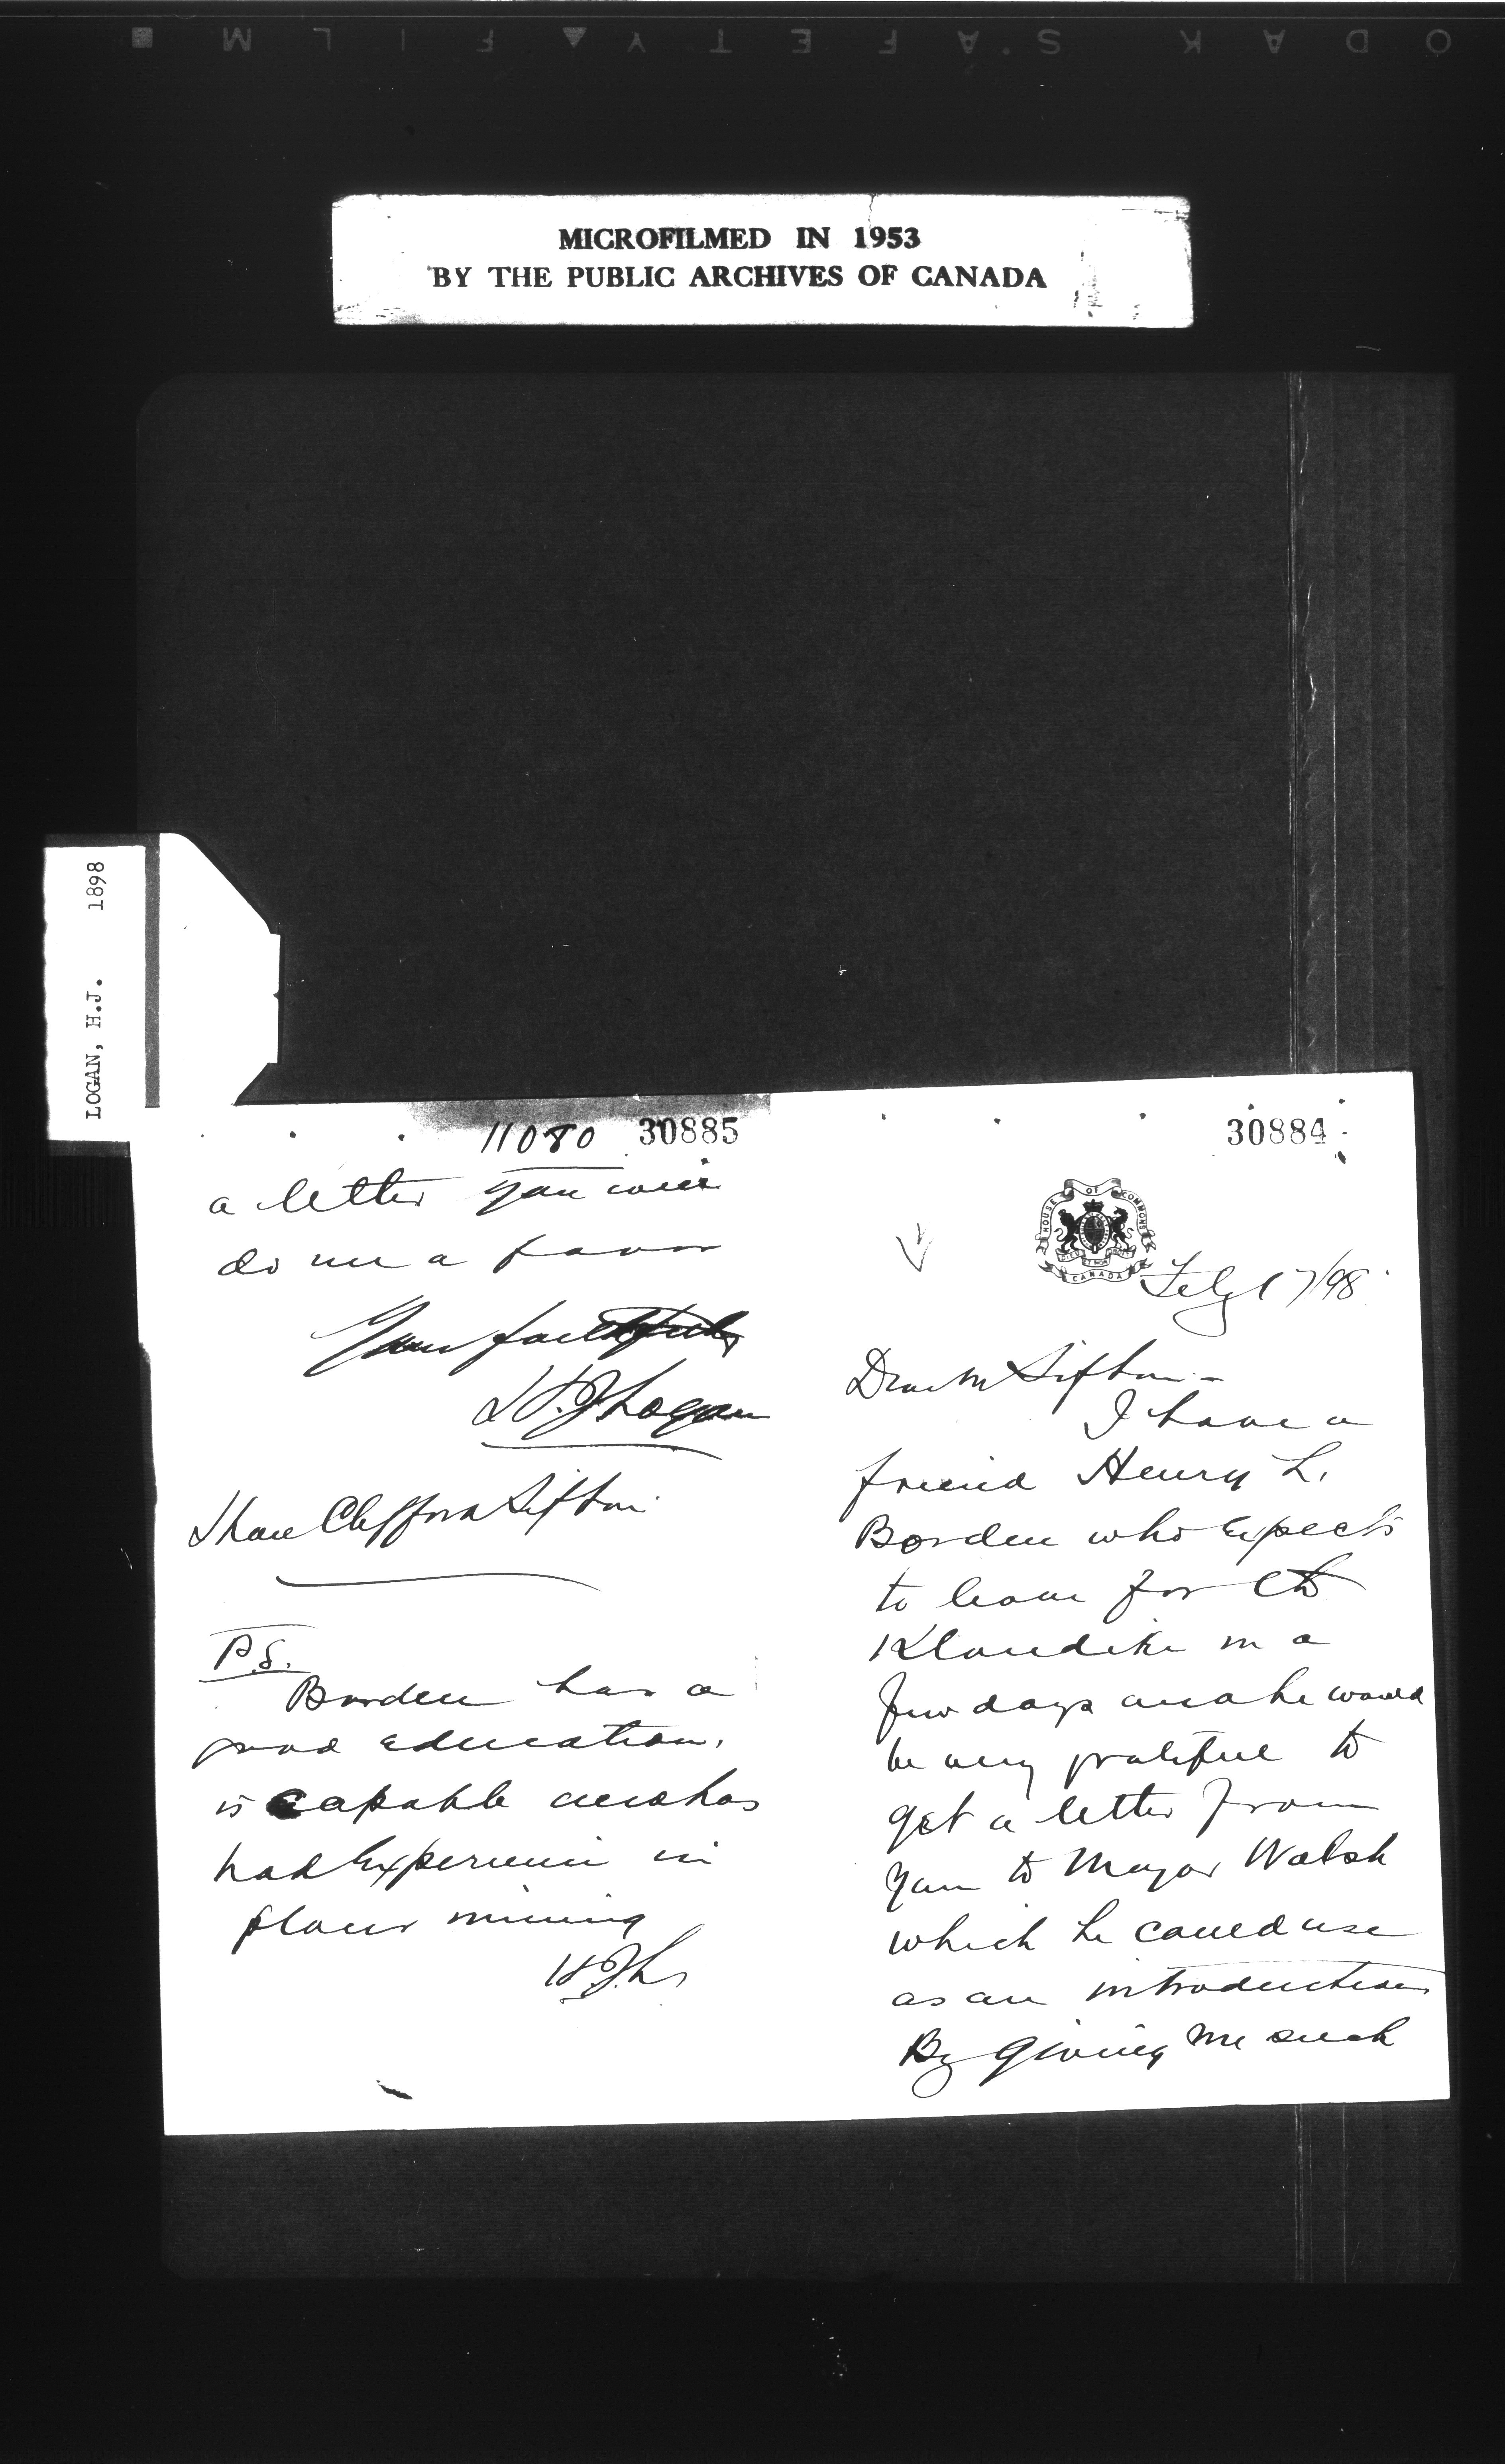 KODAK SAFETY FILM
MICROFILMED IN 1953
BY THE PUBLIC ARCHIVES OF CANADA
LOGAN, H.J. 1898
30884
HOUSE OF COMMONS
CANADA
Feby 17/98
Dear Mr Sifton -
I have a
friend Henry L.
Borden who expects
to leave for the
Klondike in a
few days and he would
be very grateful to
get a letter from
you to Mayor Walsh
which he could use
as an introduction
By giving me such
11080 30885
a letter you will
do me a favor
Yours faithfully
H.J. Logan
Hon Clifford Sifton
P.S.
Borden has a
good education,
is capable and has
had experience in
placer mining
H.J.L.